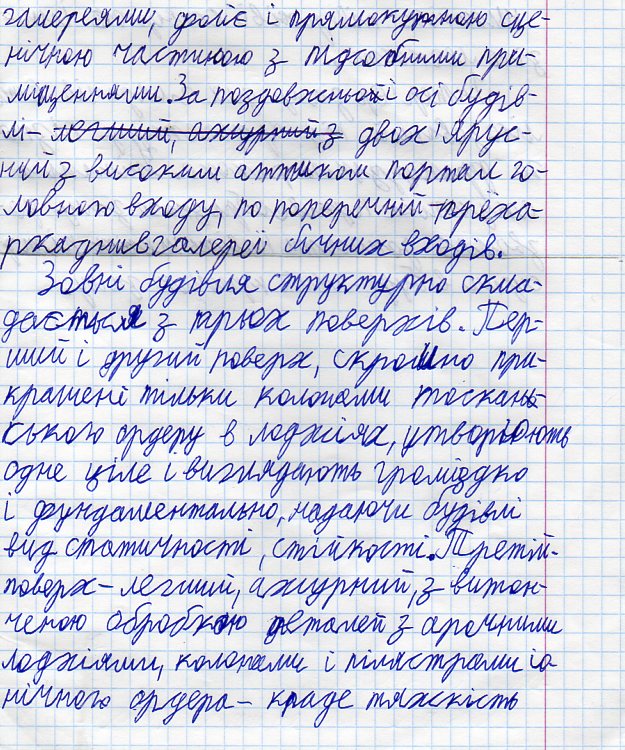 галереями, фойє і прямокутною сце-
нічною частиною з підсобними при-
міщеннями. За поздовжньої осі будів-
лі - легший, ажурний, з двох'ярус-
ний з високим аттиком портал го-
ловного входу, по поперечній - трьоха-
ркадні галереї бічних входів.
Зовні будівля структурно скла-
дається з трьох поверхів. Пер-
ший і другий поверх, скромно при-
крашені тільки колонами тоскан-
ською ордеру в лоджіях, утворюють
одне ціле і виглядають громіздко
і фундаментально, надаючи будівлі
вид статичності, стійкості. Третій-
поверх - легший, ажурний, з витон-
ченою обробкою деталей з арочними
лоджіями, колонами і пілястрами іо
нічного ордера - краде тяжкість